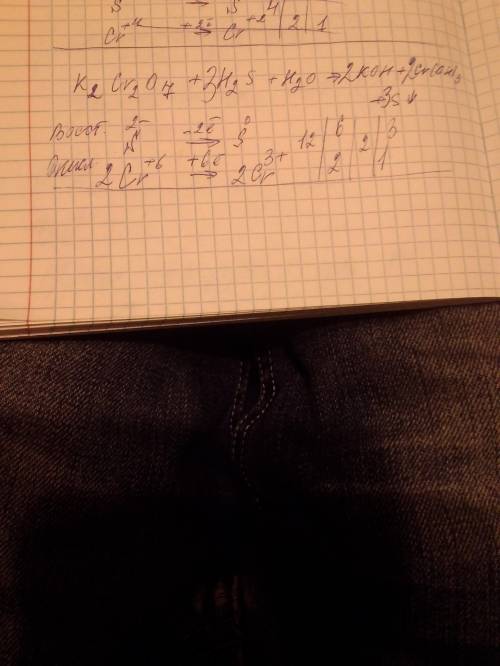 S → S 4
Cr+4 +2ē Cr+2 | 2 | 1
K2Cr2O7 + 3H2S + H2O → 2KOH + 2Cr(OH)3
+3S↓
Восст. S2- -2ē → S0 12 | 6 | 2 | 3
Окисл 2Cr+6 +6ē → 2Cr3+ | 2 | | 1